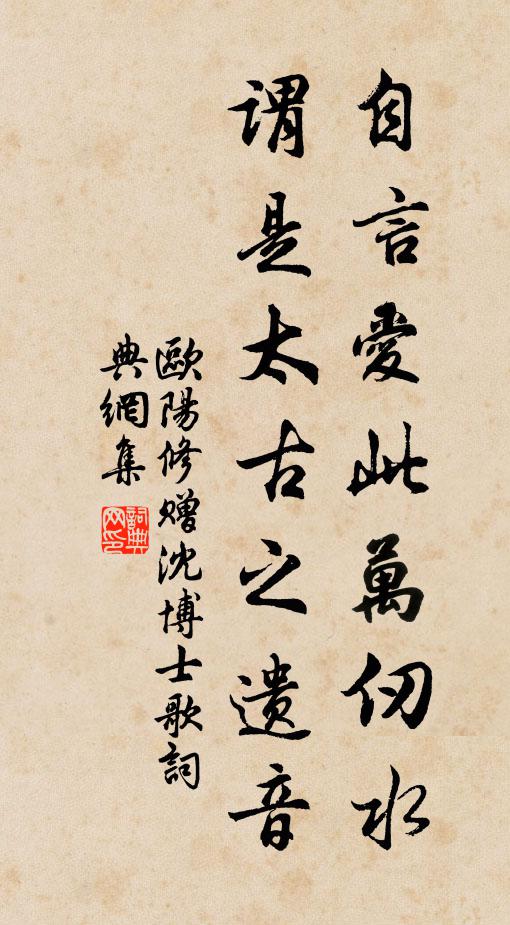 自言愛此萬仞水
謂是太古之遺音
歐陽修贈沈博士歌詞
典網集
詞典网印